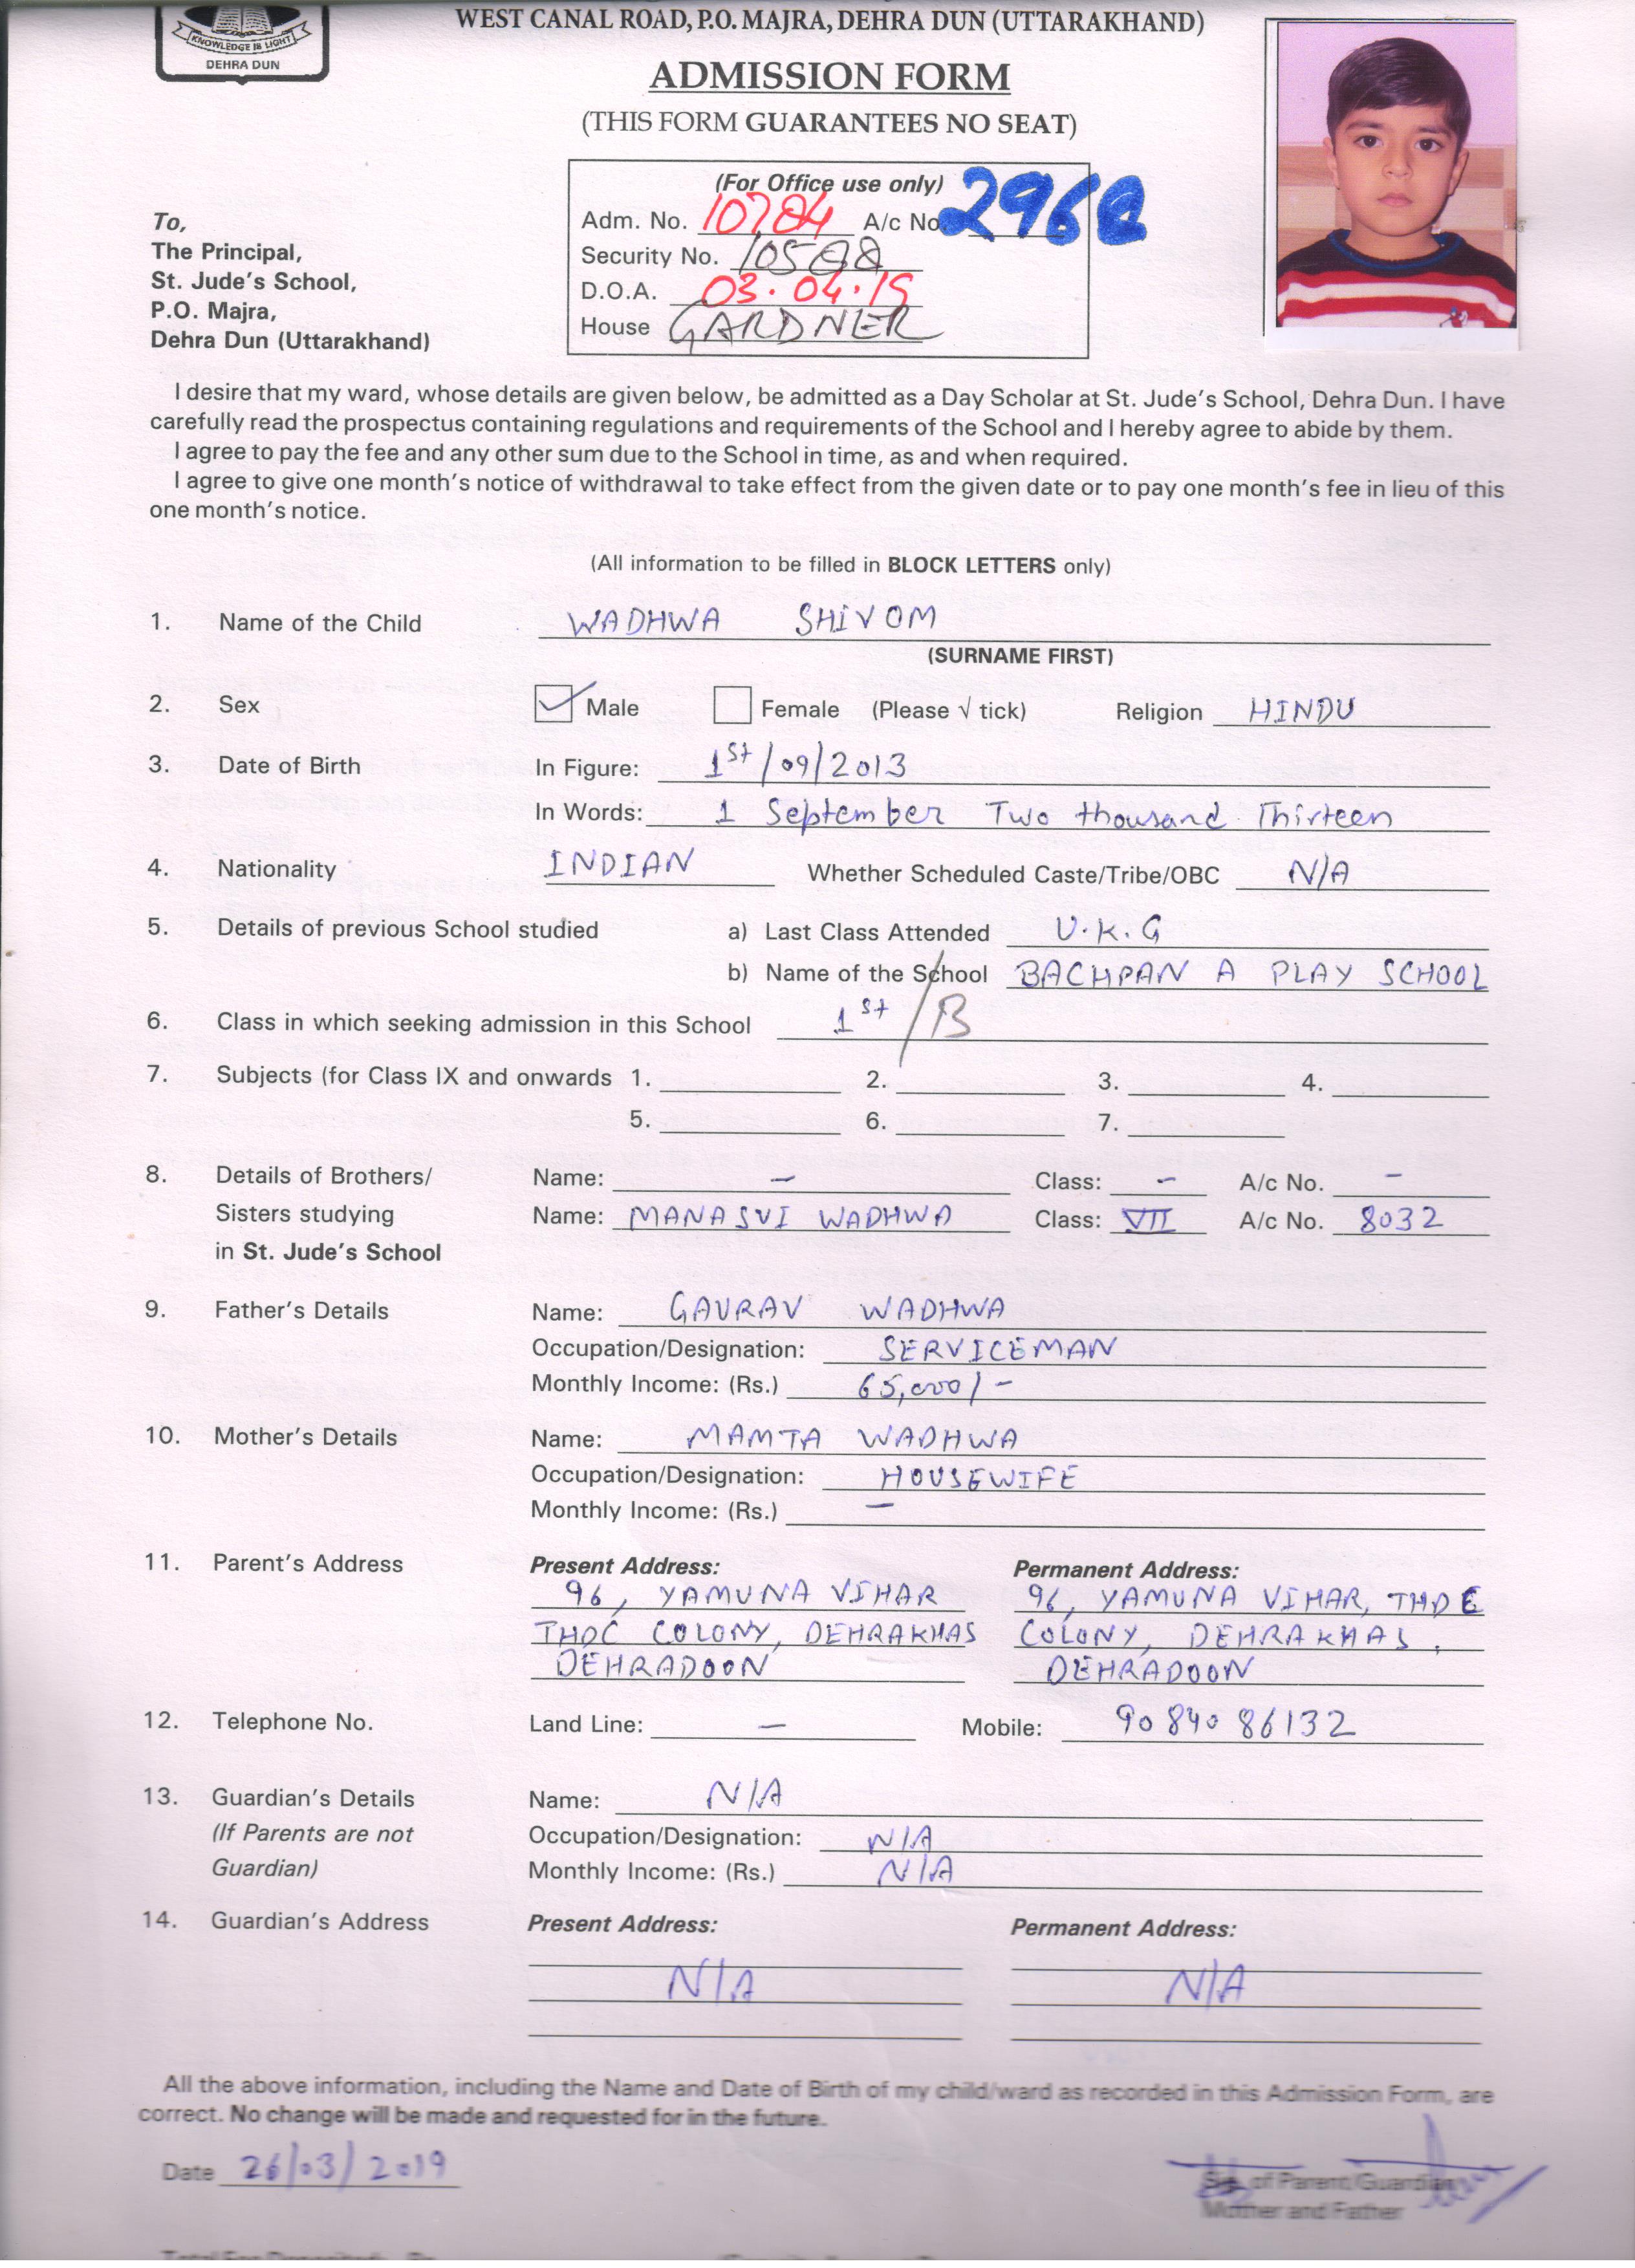 KNOWLEDGE IS LIGHT
DEHRA DUN
WEST CANAL ROAD, P.O. MAJRA, DEHRA DUN (UTTARAKHAND)
ADMISSION FORM
(THIS FORM GUARANTEES NO SEAT)
(For Office use only)
Adm. No. 10784 A/c No. 2968
Security No. 10588
D.O.A. 03.04.19
House GARDNER
To,
The Principal,
St. Jude's School,
P.O. Majra,
Dehra Dun (Uttarakhand)
I desire that my ward, whose details are given below, be admitted as a Day Scholar at St. Jude's School, Dehra Dun. I have
carefully read the prospectus containing regulations and requirements of the School and I hereby agree to abide by them.
I agree to pay the fee and any other sum due to the School in time, as and when required.
I agree to give one month's notice of withdrawal to take effect from the given date or to pay one month's fee in lieu of this
one month's notice.
(All information to be filled in BLOCK LETTERS only)
1. Name of the Child WADHWA SHIVOM
(SURNAME FIRST)
2. Sex Male Female (Please √ tick) Religion HINDU
3. Date of Birth In Figure: 1st/09/2013
In Words: 1 September Two thousand Thirteen
4. Nationality INDIAN Whether Scheduled Caste/Tribe/OBC N/A
5. Details of previous School studied a) Last Class Attended U.K.G
b) Name of the School BACHPAN A PLAY SCHOOL
6. Class in which seeking admission in this School 1st/B
7. Subjects (for Class IX and onwards 1. 2. 3. 4.
5. 6. 7.
8. Details of Brothers/ Name: - Class: - A/c No. -
Sisters studying Name: MANASVI WADHWA Class: VII A/c No. 8032
in St. Jude's School
9. Father's Details Name: GAURAV WADHWA
Occupation/Designation: SERVICEMAN
Monthly Income: (Rs.) 65,000/-
10. Mother's Details Name: MAMTA WADHWA
Occupation/Designation: HOUSEWIFE
Monthly Income: (Rs.) -
11. Parent's Address Present Address: Permanent Address:
96, YAMUNA VIHAR 96, YAMUNA VIHAR, THDC
THDC COLONY, DEHRAKHAS COLONY, DEHRAKHAS,
DEHRADOON DEHRADOON
12. Telephone No. Land Line: - Mobile: 9084086132
13. Guardian's Details Name: N/A
(If Parents are not Occupation/Designation: N/A
Guardian) Monthly Income: (Rs.) N/A
14. Guardian's Address Present Address: Permanent Address:
N/A N/A
All the above information, including the Name and Date of Birth of my child/ward as recorded in this Admission Form, are
correct. No change will be made and requested for in the future.
Date 26/03/2019
Sig. of Parent/Guardian
Mother and Father